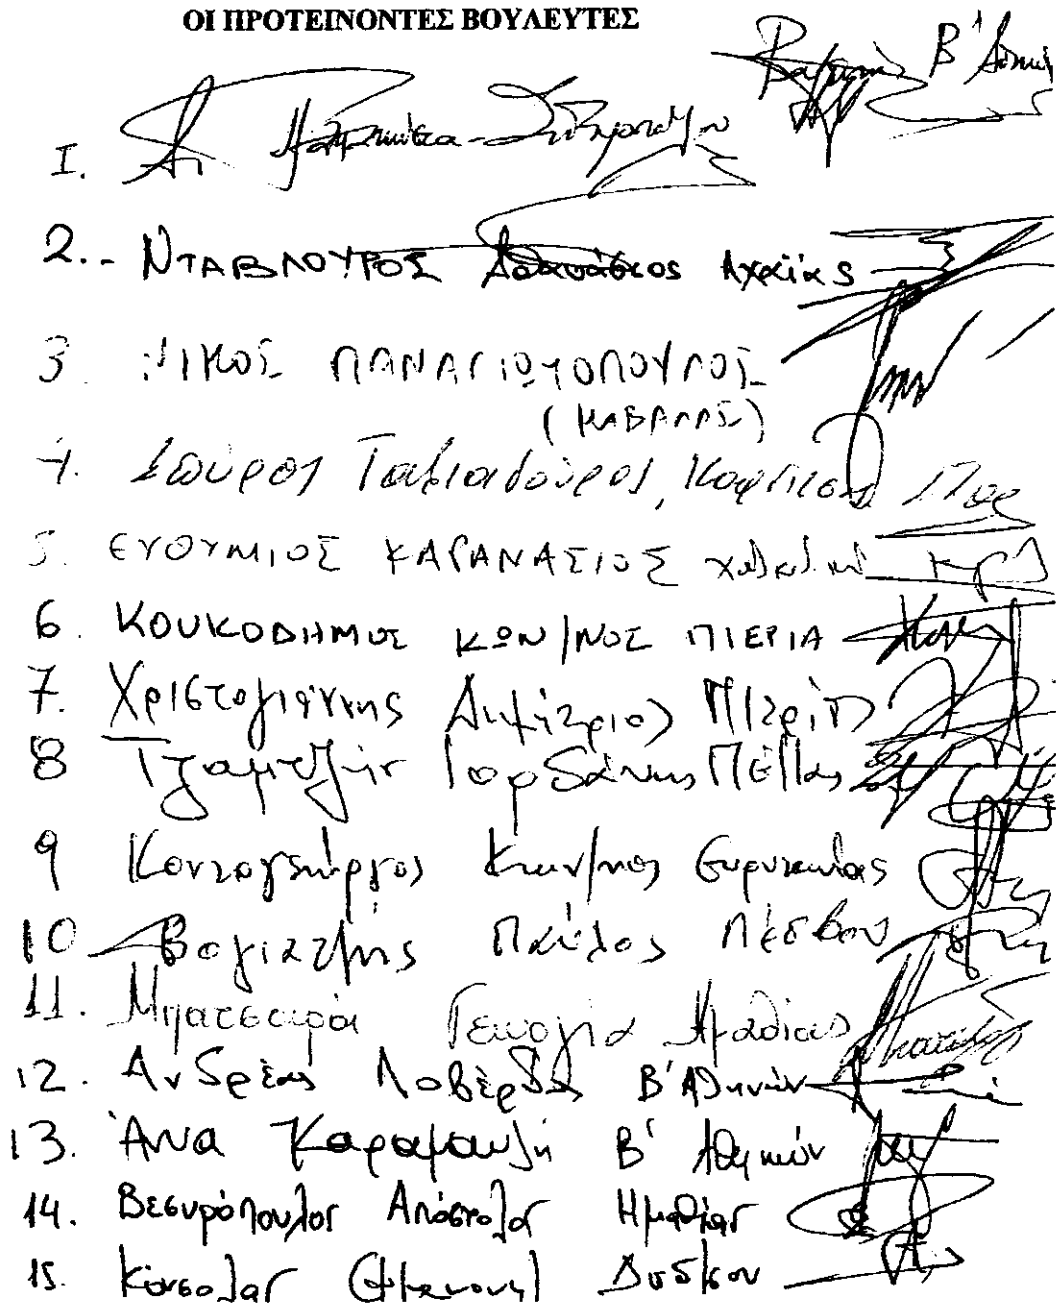 ΟΙ ΠΡΟΤΕΙΝΟΝΤΕΣ ΒΟΥΛΕΥΤΕΣ
Β'
1.
2.- ΝΤΑΒΛΟΥΡΟΣ Αθανάσιος Αχαΐας
3. ΝΙΚΟΣ ΠΑΝΑΓΙΩΤΟΠΟΥΛΟΣ
(ΚΑΒΑΛΑΣ)
4. Σπύρος
5. ΕΥΘΥΜΙΟΣ ΚΑΡΑΝΑΣΙΟΣ
6. ΚΟΥΚΟΔΗΜΟΣ ΚΩΝ/ΝΟΣ ΠΙΕΡΙΑ
7. Χριστογιάννης Δημήτριος
8 Τζαμτζής Ιορδάνης Πέλλας
9 Κοντογεώργος Κων/νος Ευρυτανίας
10 Βογιατζής Παύλος Λέσβου
11. Μπατσαρά Γεωργία Ημαθίας
12. Ανδρέας Λοβέρδος Β' Αθηνών
13. Άννα Καραμανλή Β' Αθηνών
14. Βεσυρόπουλος Απόστολος Ημαθίας
15. Κόνσολας Εμμανουήλ Δωδ/σου